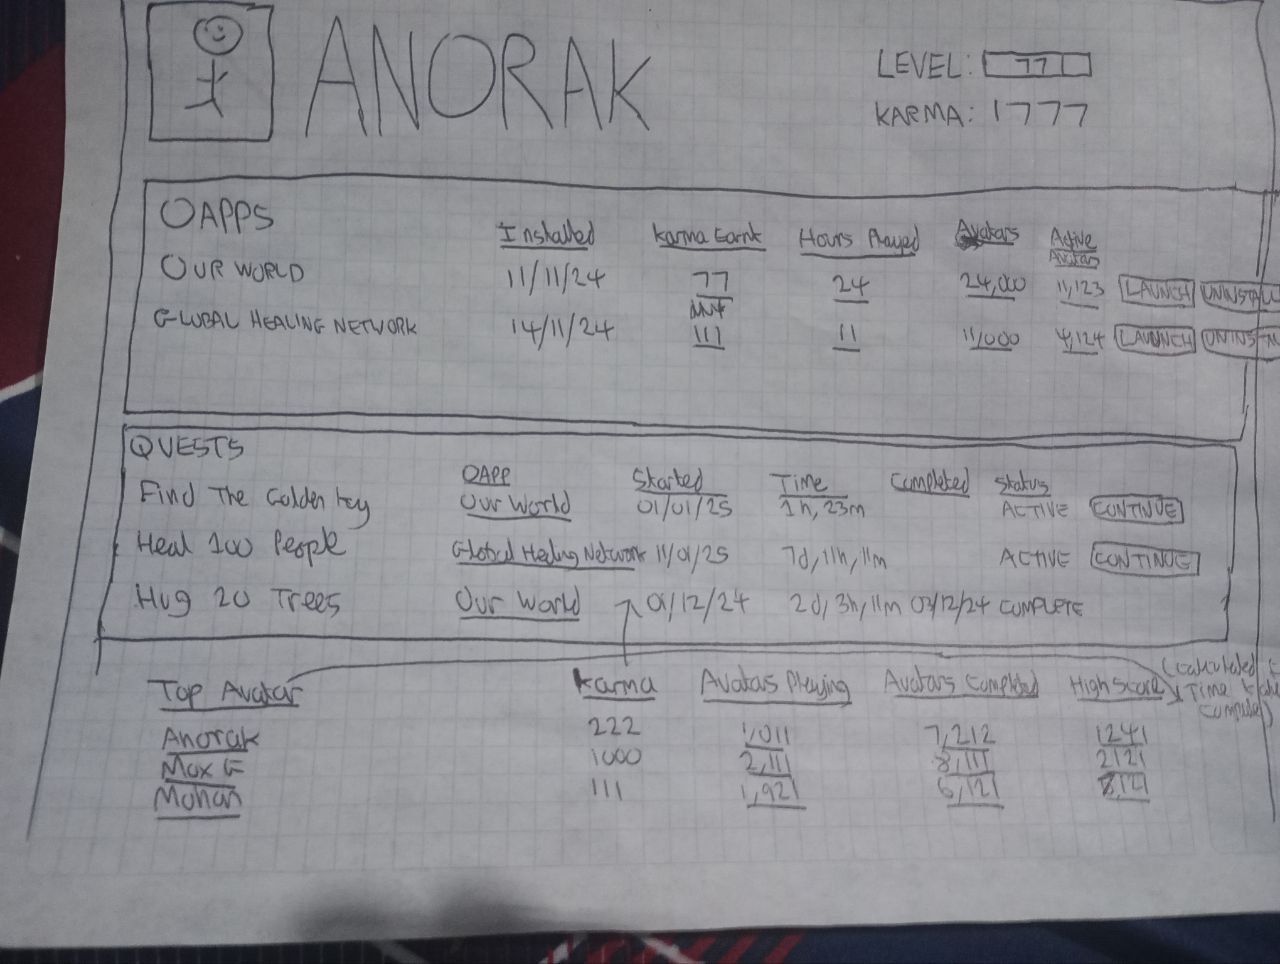 ANORAK
LEVEL: 77
KARMA: 1777
OAPPS Installed Karma Earnt Hours Played Avatars Active Avatars
OUR WORLD 11/11/24 77 24 24,000 11,123 LAUNCH UNINSTALL
GLOBAL HEALING NETWORK 14/11/24 111 11 11,000 4,124 LAUNCH
QUESTS
OAPP Started Time Completed Status
Find The Golden Key Our World 01/01/25 1h, 23m ACTIVE CONTINUE
Heal 100 People Global Healing Network 11/01/25 7d, 11h, 11m ACTIVE CONTINUE
Hug 20 Trees Our World 01/12/24 2d, 3h, 11m 03/12/24 COMPLETE
Top Avatar Karma Avatars Playing Avatars Completed High Score (Calculated
Time
Anorak 222 1,011 7,212 1241
Max G 1000 2,111 8,111 2121
Mohan 111 1,921 6,121